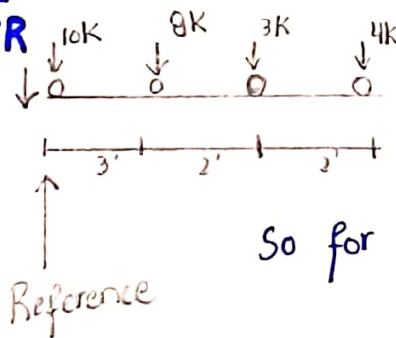 R
10K 8K 3K 4K
3' 2' 2'
So for
Reference